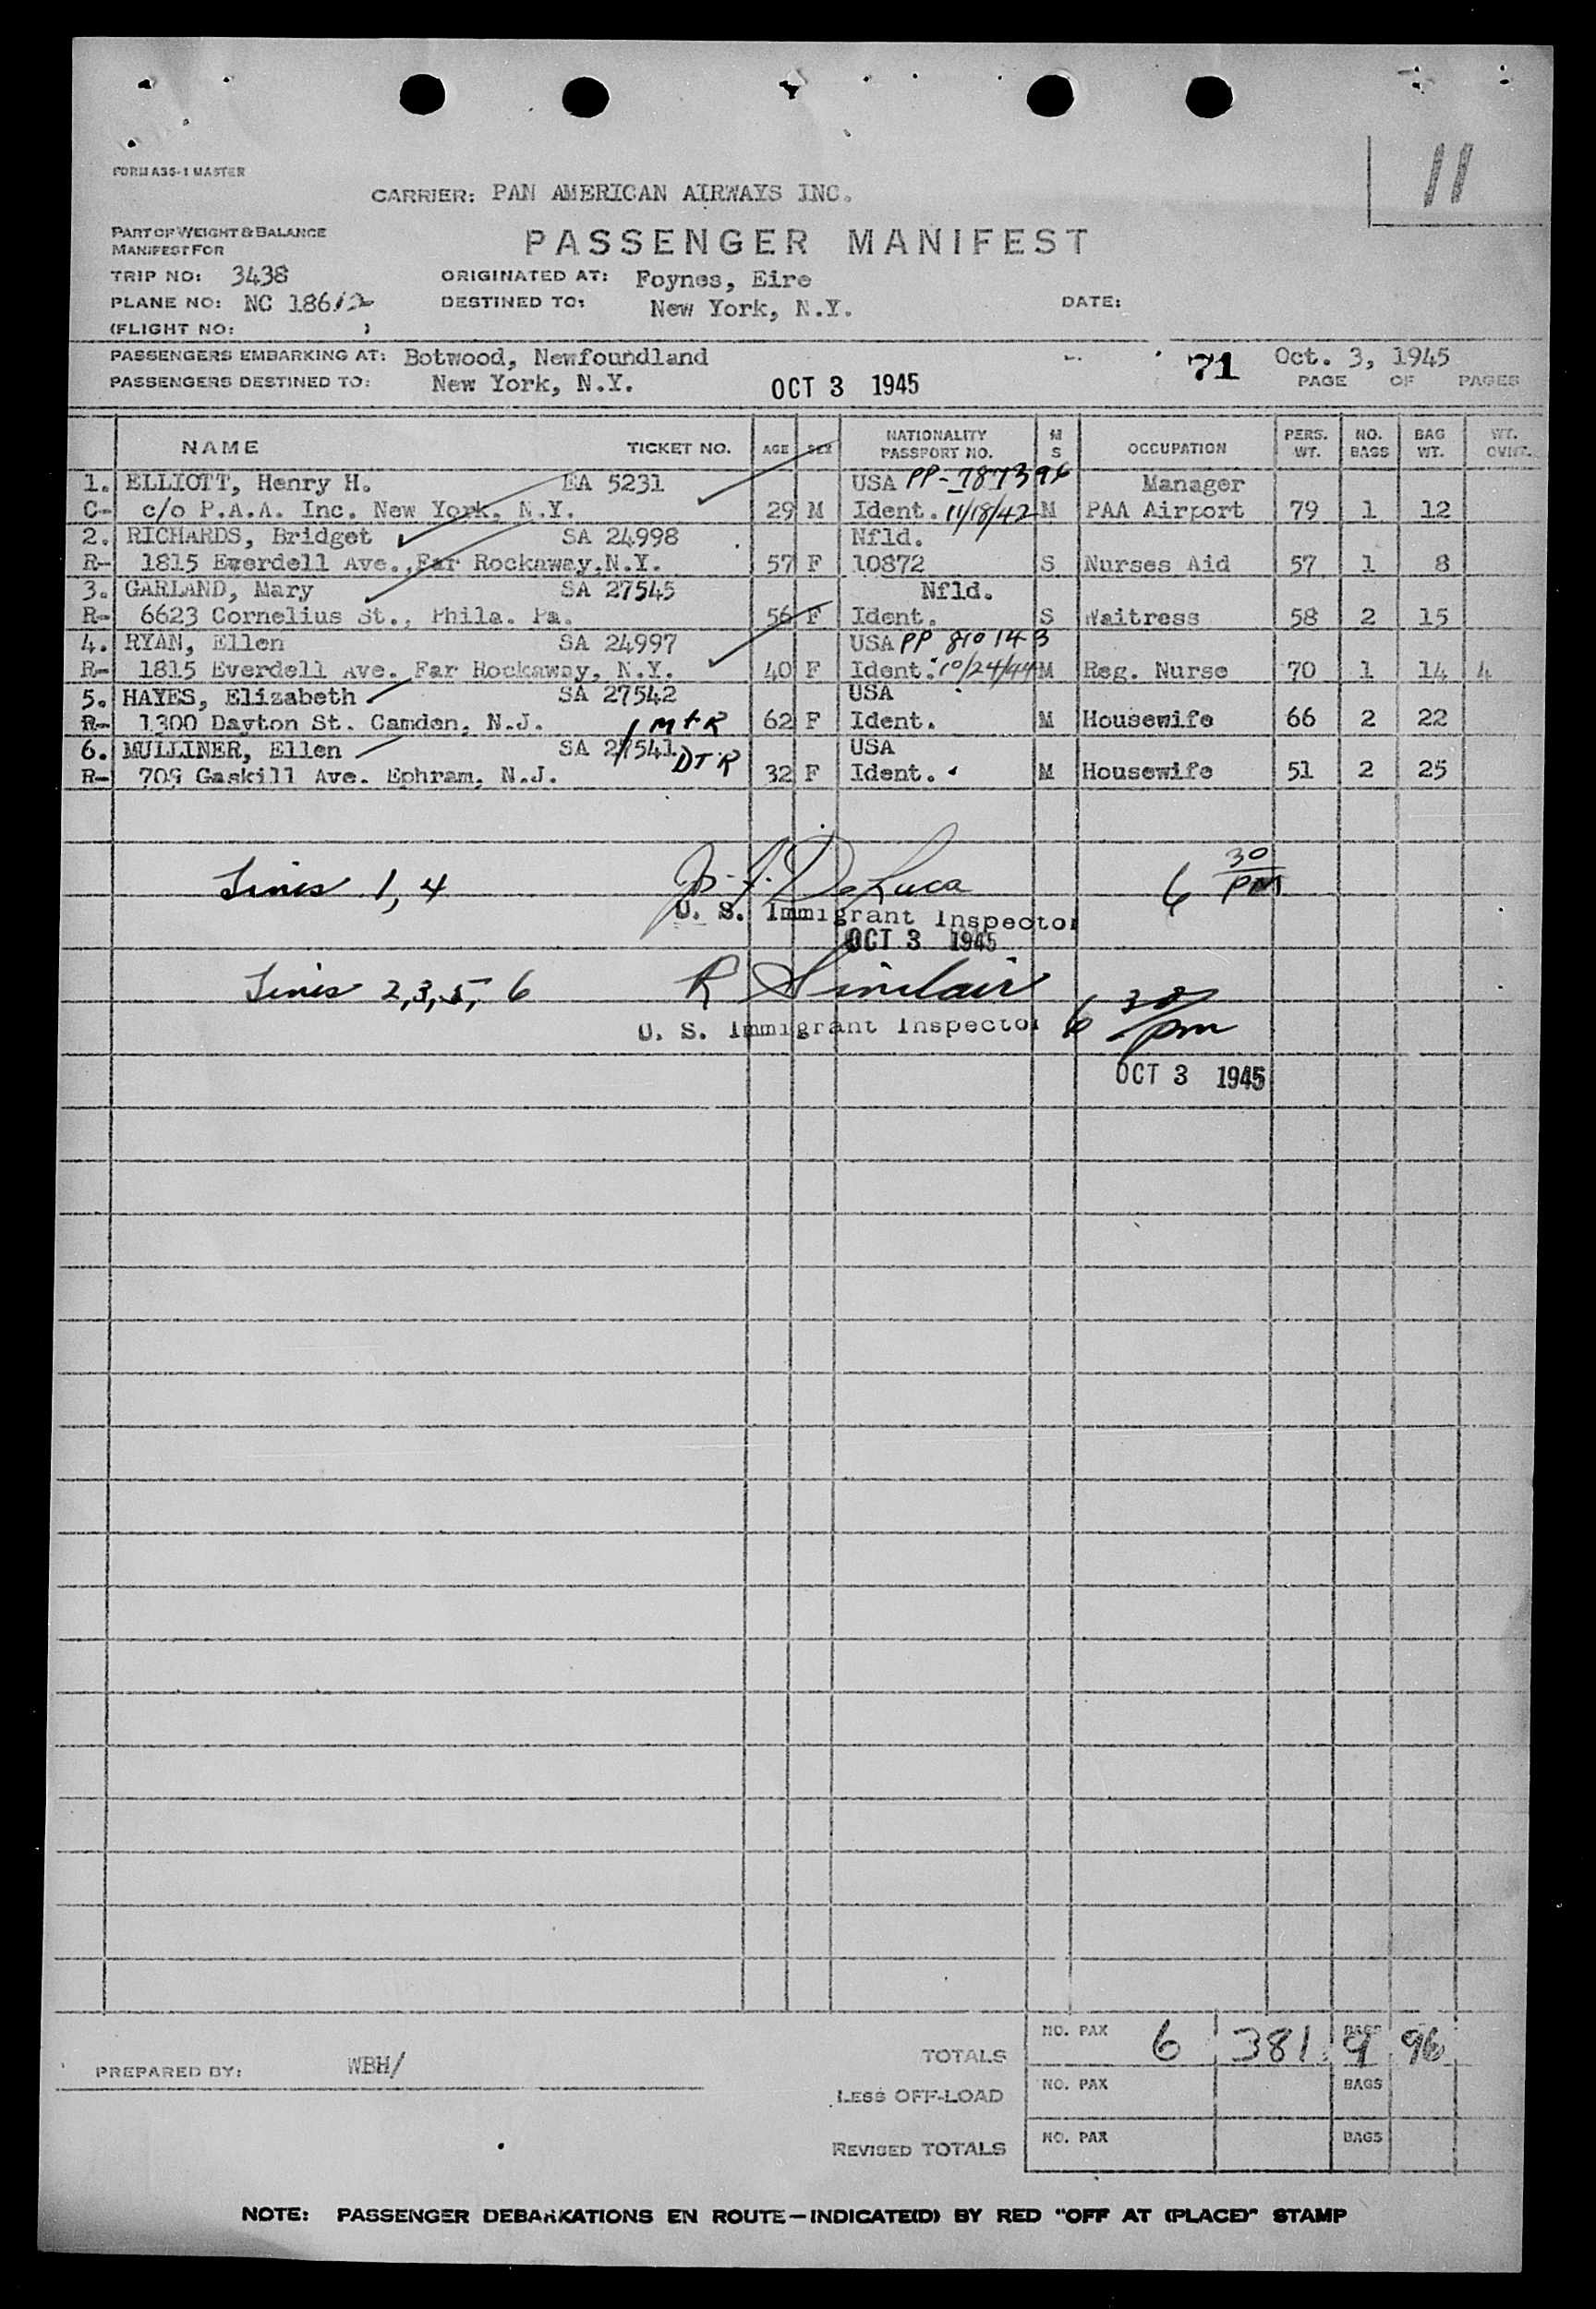 11
FORM A35-1 MASTER
CARRIER: PAN AMERICAN AIRWAYS INC.
PART OF WEIGHT & BALANCE
MANIFEST FOR
PASSENGER MANIFEST
TRIP NO: 3438 ORIGINATED AT: Foynes, Eire
PLANE NO: NC 18612 DESTINED TO: New York, N.Y. DATE:
(FLIGHT NO: )
PASSENGERS EMBARKING AT: Botwood, Newfoundland 71 Oct. 3, 1945
PASSENGERS DESTINED TO: New York, N.Y. OCT 3 1945 PAGE OF PAGES
NAME TICKET NO. AGE SEX NATIONALITY PASSPORT NO. M S OCCUPATION PERS. WT. NO. BAGS BAG WT. WT.
1. ELLIOTT, Henry H. EA 5231 USA PP-787396 Manager
C- c/o P.A.A. Inc. New York, N.Y. 29 M Ident. 11/18/42 M PAA Airport 79 1 12
2. RICHARDS, Bridget SA 24998 Nfld.
R- 1815 Everdell Ave.,Far Rockaway,N.Y. 57 F 10872 S Nurses Aid 57 1 8
3. GARLAND, Mary SA 27545 Nfld.
R- 6623 Cornelius St., Phila. Pa. 56 F Ident. S Waitress 58 2 15
4. RYAN, Ellen SA 24997 USA PP 810143
R- 1815 Everdell Ave. Far Rockaway, N.Y. 40 F Ident. 10/24/44 M Reg. Nurse 70 1 14 4
5. HAYES, Elizabeth SA 27542 USA
R- 1300 Dayton St. Camden, N.J. 1 M+R 62 F Ident. M Housewife 66 2 22
6. MULLINER, Ellen SA 27541 DTR USA
R- 709 Gaskill Ave. Ephram, N.J. 32 F Ident. M Housewife 51 2 25
Lines 1, 4 De Luca 6 30 PM
U. S. Immigrant Inspector
OCT 3 1945
Lines 2,3,5, 6 R Sinclair
U. S. Immigrant Inspector 6 30 pm
OCT 3 1945
TOTALS NO. PAX 6 381 BAGS 9 96
PREPARED BY: WBH/
LESS OFF-LOAD NO. PAX BAGS
REVISED TOTALS NO. PAX BAGS
NOTE: PASSENGER DEBARKATIONS EN ROUTE—INDICATE(D) BY RED "OFF AT (PLACE)" STAMP